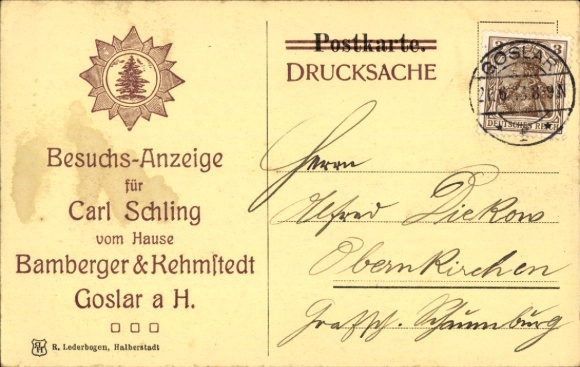 Besuchs-Anzeige
für
Carl Schling
vom Hause
Bamberger & Kehmstedt
Goslar a H.
R. Lederbogen, Halberstadt
Postkarte.
DRUCKSACHE
GOSLAR
3
DEUTSCHES REICH
Herrn
Alfred Dickow
Obernkirchen
Grafsch. Schaumburg